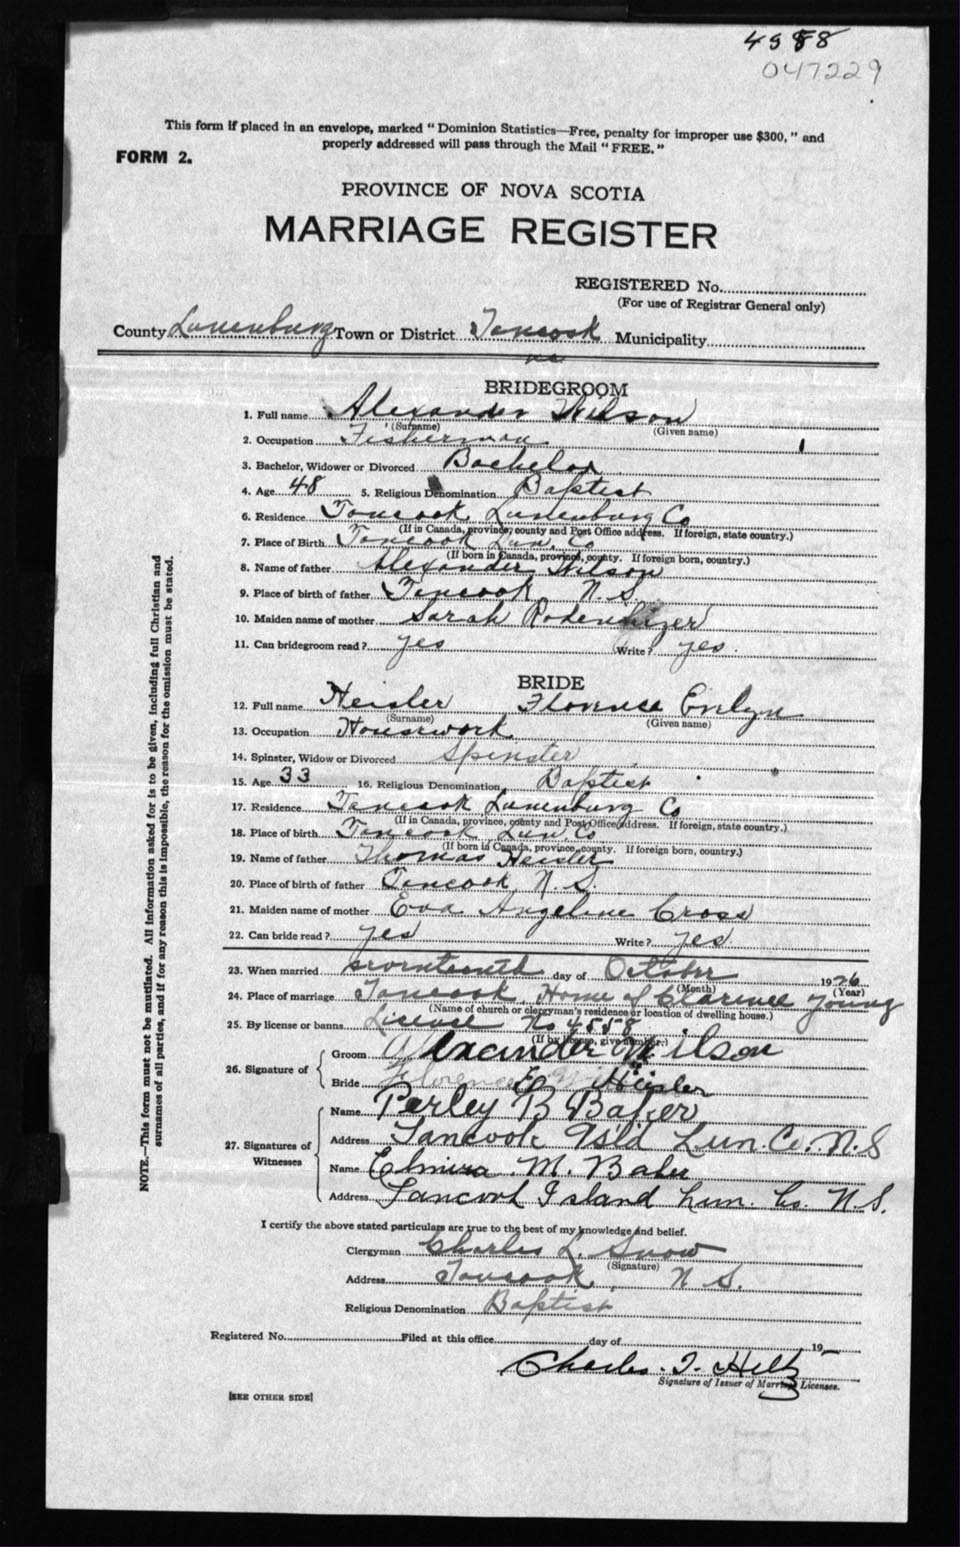 4588
047229
This form if placed in an envelope, marked "Dominion Statistics—Free, penalty for improper use $300," and
properly addressed will pass through the Mail "FREE."
FORM 2.
PROVINCE OF NOVA SCOTIA
MARRIAGE REGISTER
REGISTERED No.
(For use of Registrar General only)
County Lunenburg Town or District Tancook Municipality
NS
BRIDEGROOM
1. Full name Alexander Wilson
(Surname) (Given name)
2. Occupation Fisherman
3. Bachelor, Widower or Divorced Bachelor
4. Age 48 5. Religious Denomination Baptist
6. Residence Tancook Lunenburg Co
(If in Canada, province, county and Post Office address. If foreign, state country.)
7. Place of Birth Tancook Lun. Co
(If born in Canada, province, county. If foreign born, country.)
8. Name of father Alexander Wilson
9. Place of birth of father Tancook N.S.
10. Maiden name of mother Sarah Rodenhizer
11. Can bridegroom read? yes Write? yes.
BRIDE
12. Full name Heisler Florence Evelyn
(Surname) (Given name)
13. Occupation Housework
14. Spinster, Widow or Divorced Spinster
15. Age 33 16. Religious Denomination Baptist
17. Residence Tancook Lunenburg Co
(If in Canada, province, county and Post Office address. If foreign, state country.)
18. Place of birth Tancook Lun. Co
(If born in Canada, province, county. If foreign born, country.)
19. Name of father Thomas Heisler
20. Place of birth of father Tancook N.S.
21. Maiden name of mother Eva Angeline Cross
22. Can bride read? yes Write? yes.
23. When married seventeenth day of October 1926
(Month) (Year)
24. Place of marriage Tancook, Home of Clarence Young
(Name of church or clergyman's residence or location of dwelling house.)
25. By license or banns License No 4558
(If by license, give number.)
26. Signature of
Groom Alexander Wilson
Bride Florence E Heisler
27. Signatures of Witnesses
Name Perley B Baker
Address Tancook Isl'd Lun. Co. N.S
Name Elmira M. Baker
Address Tancook Island Lun. Co. N.S.
I certify the above stated particulars are true to the best of my knowledge and belief.
Clergyman Charles L. Snow
(Signature)
Address Tancook, N S.
Religious Denomination Baptist
Registered No. Filed at this office day of 19
Charles. I. Hiltz
Signature of Issuer of Marriage Licenses.
[SEE OTHER SIDE]
NOTE.—This form must not be mutilated. All information asked for is to be given, including full Christian and
surnames of all parties, and if for any reason this is impossible, the reason for the omission must be stated.